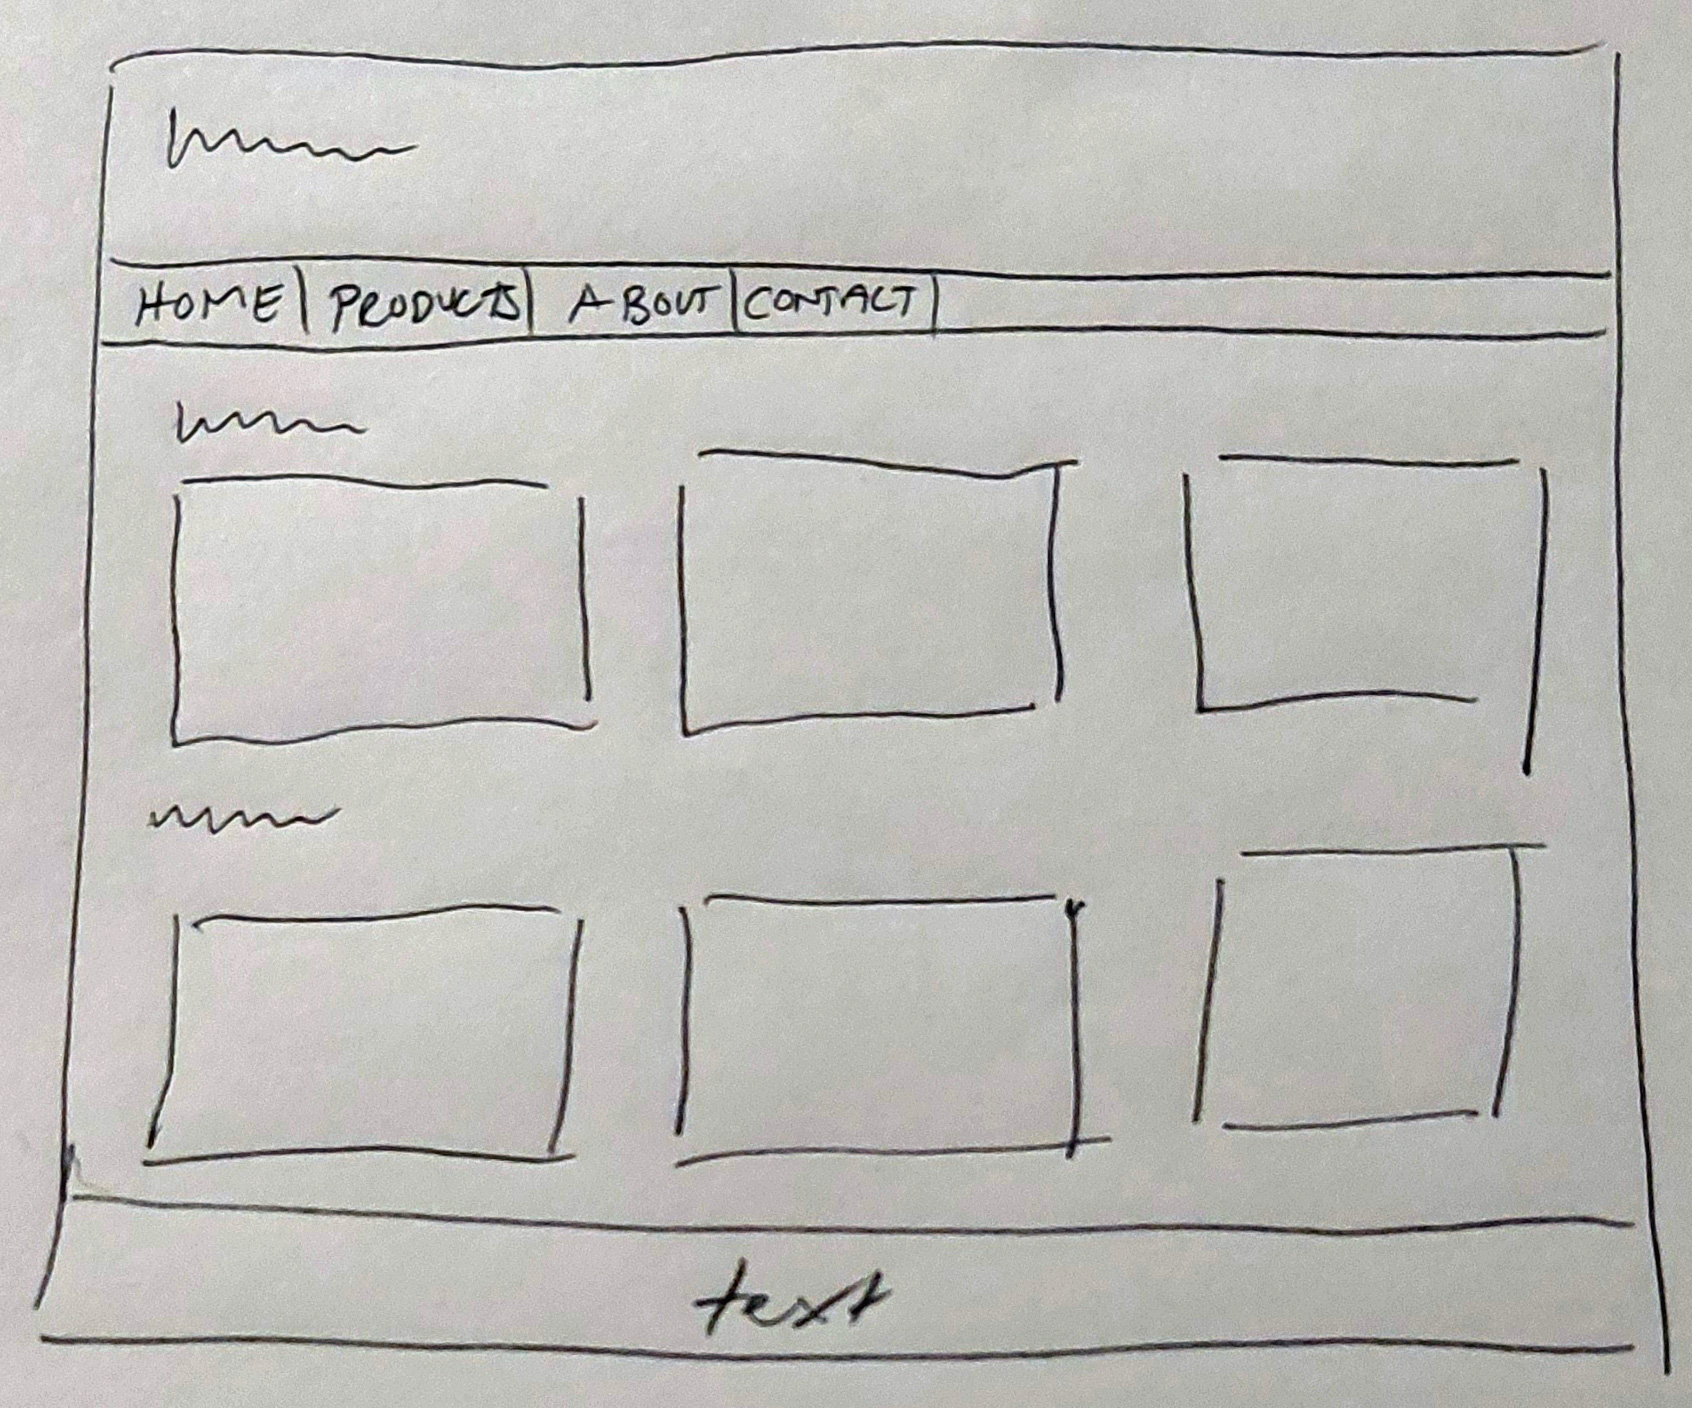 HOME PRODUCTS ABOUT CONTACT
text